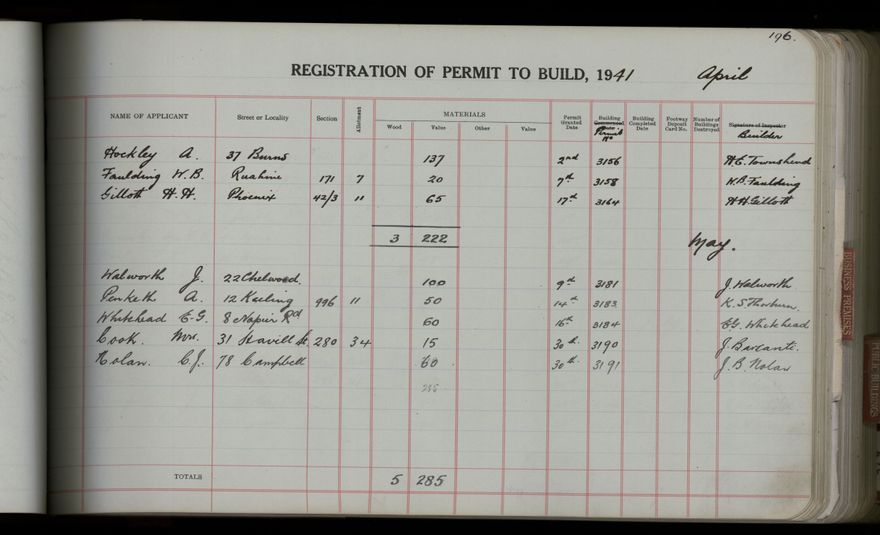 196.
REGISTRATION OF PERMIT TO BUILD, 1941 April
NAME OF APPLICANT Street or Locality Section Allotment MATERIALS Wood Value Other Value Permit Granted Date Building Commenced Date Permit No Building Completed Date Footway Deposit Card No. Number of Buildings Destroyed Signature of Inspector Builder
Hockley A. 37 Burns 137 2nd 3156 H.E. Townshend
Faulding W.B. Ruahine 171 7 20 7th 3158 W.B. Faulding
Gilloth H.H. Phoenix 42/3 11 65 17th 3164 H H Gilloth
3 222 May.
Walworth J. 22 Chelwood. 100 9th 3181 J. Walworth
Penketh A. 12 996 11 50 14th 3183 K. S Thorburn.
Whitehead E.G. 8 Napier Rd 60 16th 3184 E G. Whitehead
Cook. Mrs. 31 St 280 34 15 30th 3190 J.
Nolan. C J. 78 Campbell 60 30th 3191 J. B. Nolan
285
TOTALS 5 285
BUSINESS PREMISES
PUBLIC BUILDINGS